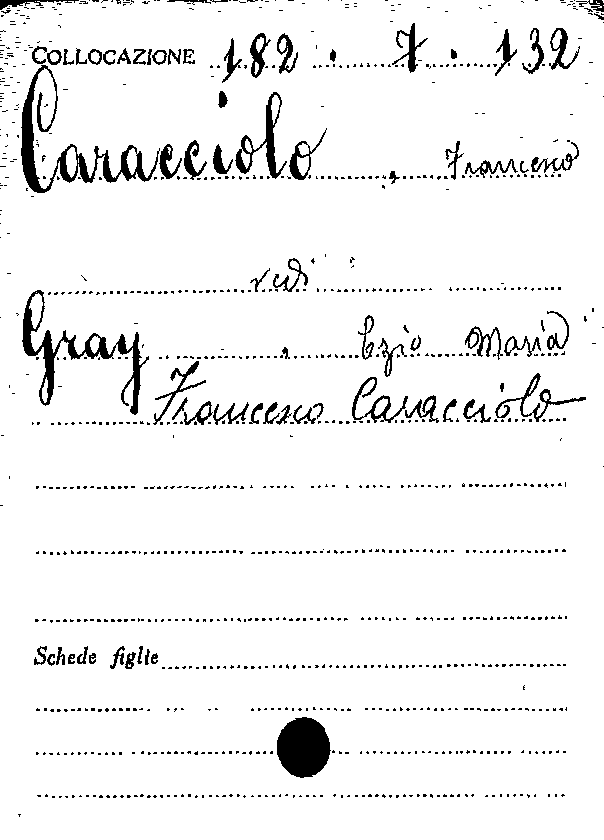 COLLOCAZIONE 182 . 7 . 132
Caracciolo , Francesco
vedi
Gray , Ezio Maria
Francesco Caracciolo
Schede figlie